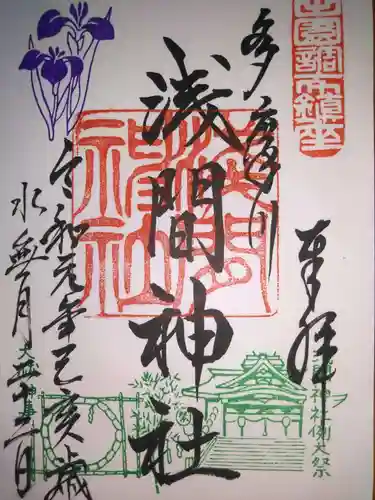 田園調布鎮坐
奉拝
多摩川
浅間神社
浅間神社
令和元年己亥歳
水無月
大祓神事
神社例大祭